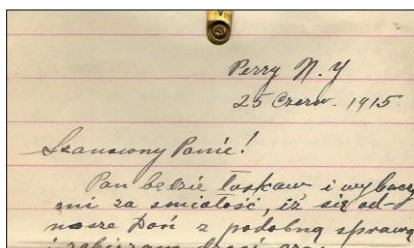 Perry N. Y
25 Czerw. 1915
Szanowny Panie!
Pan będzie łaskaw i wybaczy
mi za śmiałość, iż się od-
noszę Doń z podobną sprawą
i zabieram drogi